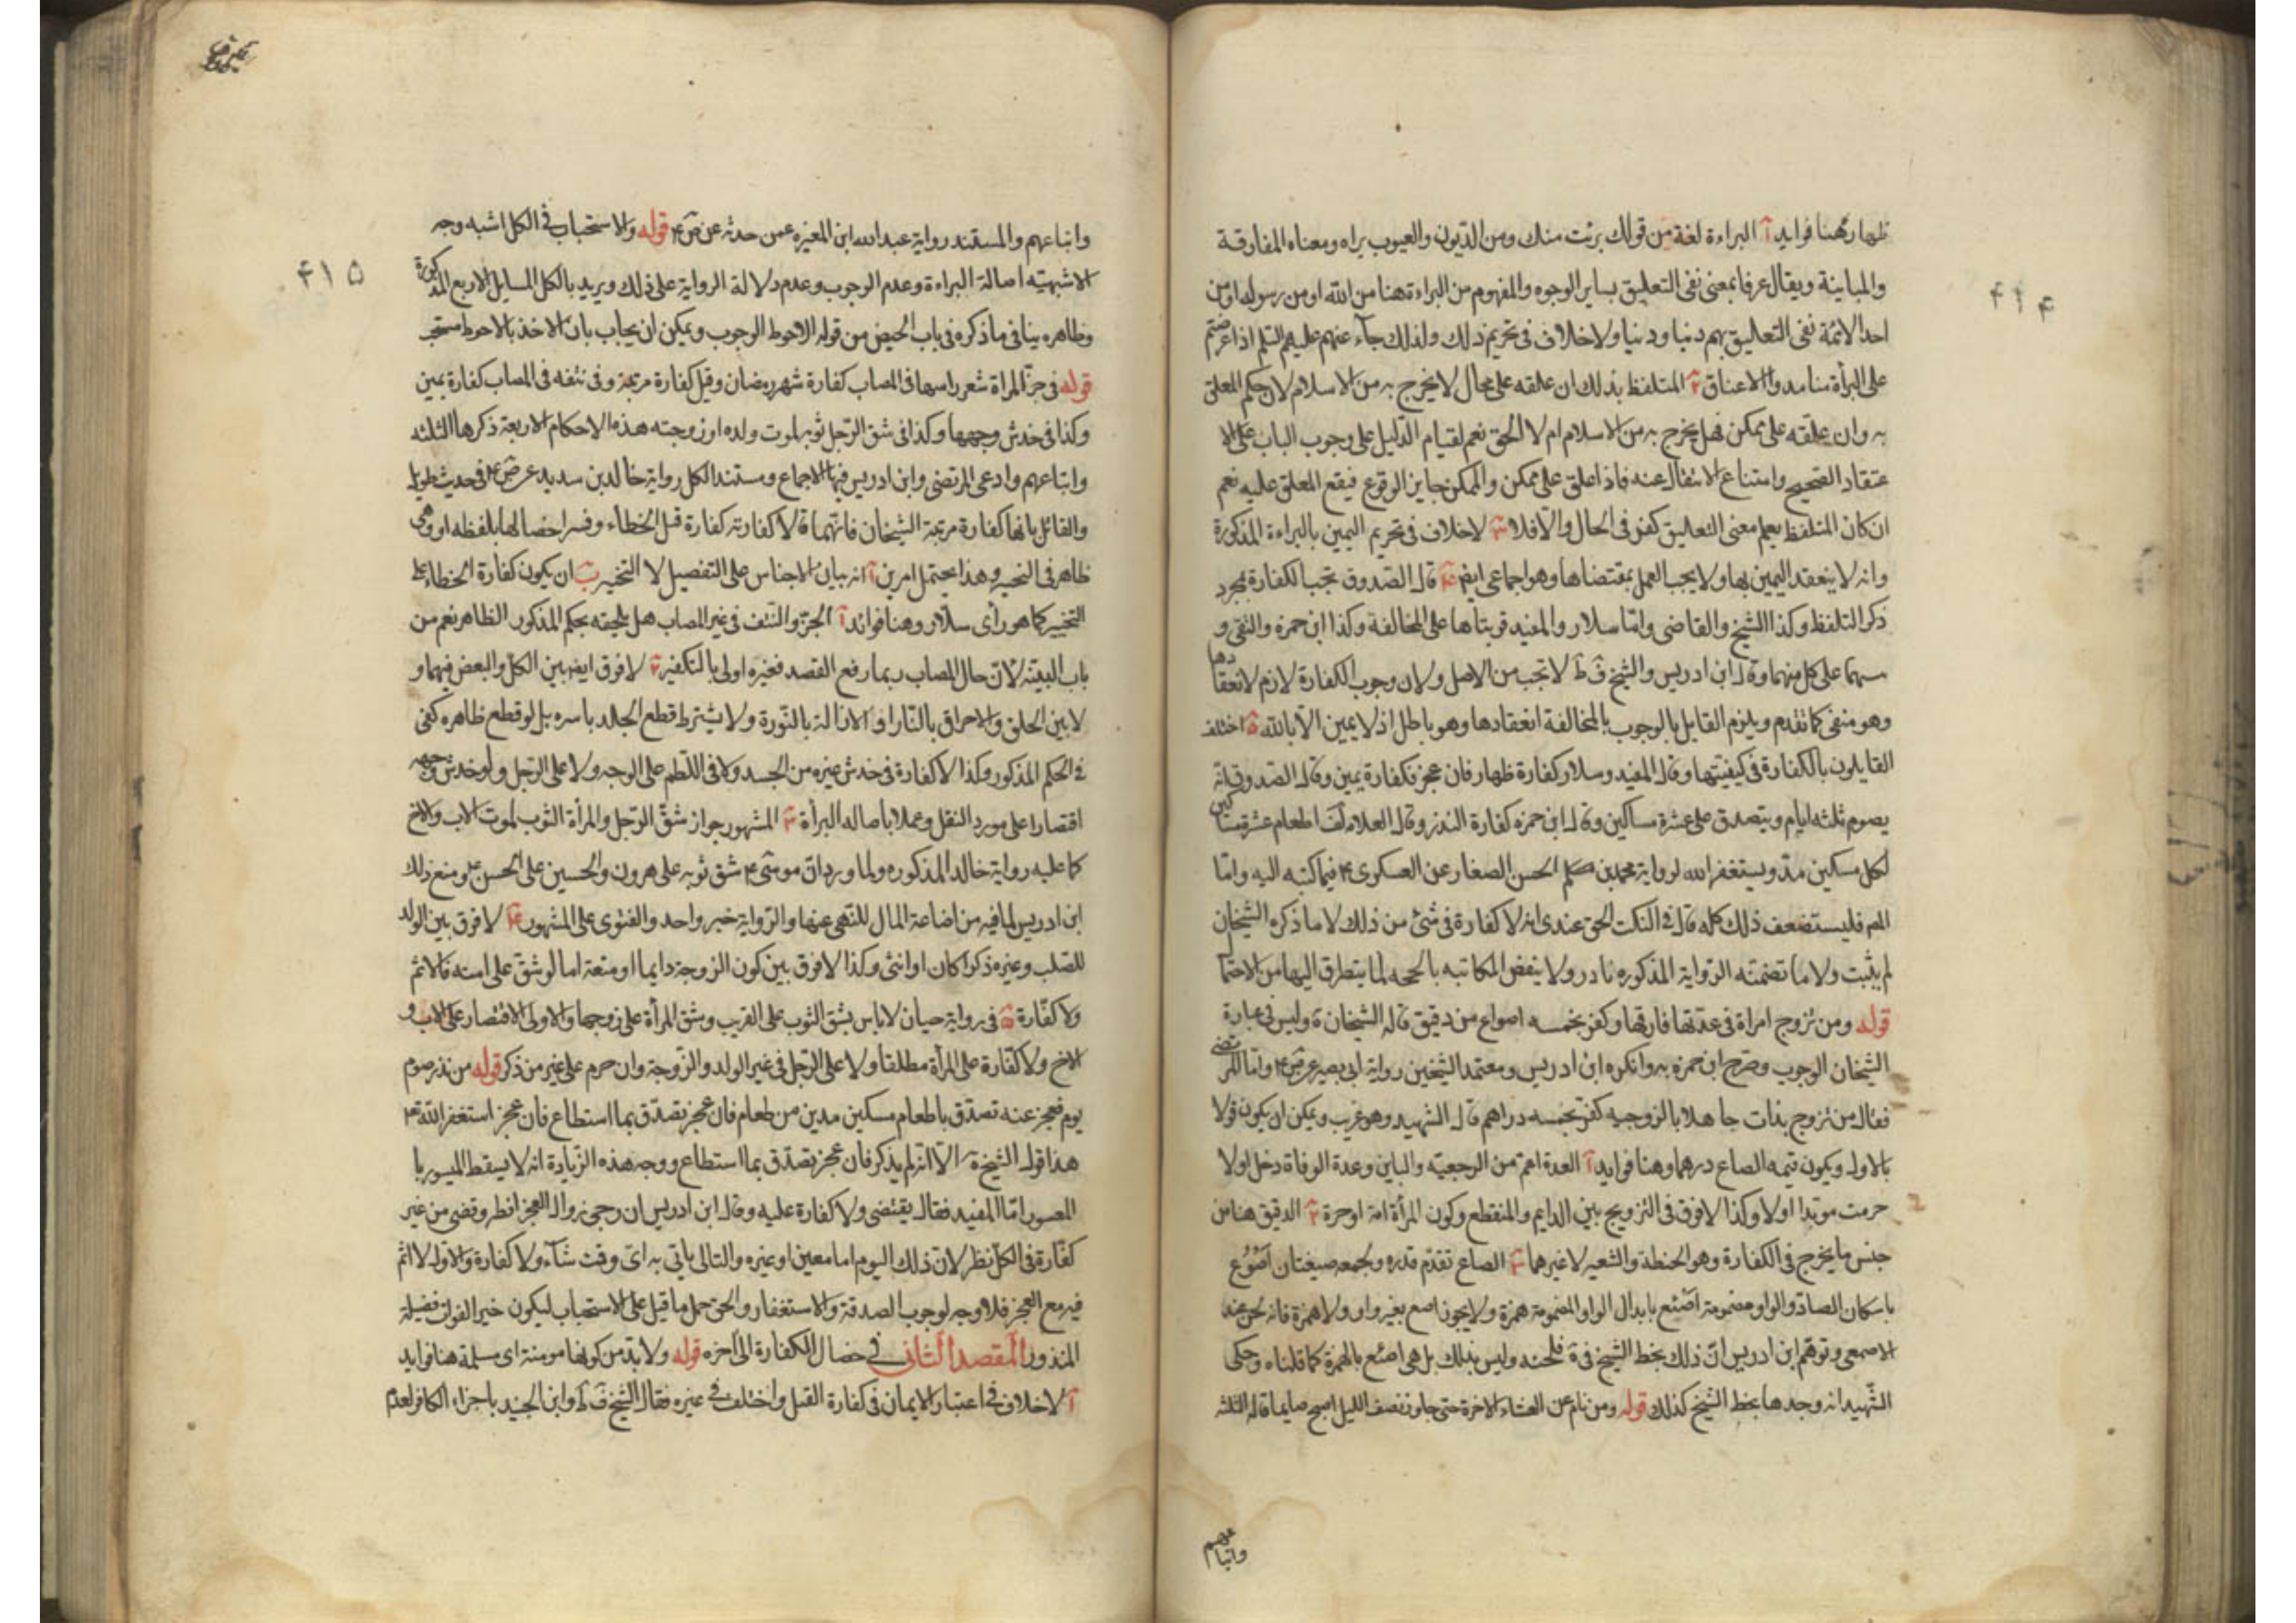 ۴۱۴
ظهار وهنا فوايد آ البراءة لغة من قولك برئت منك ومن الديون والعيوب براه ومعناه المفارقة
والمباينة ويقال عرفا بمعنى نفى التعليق بساير الوجوه والمفهوم من البراءة هنا من الله او من رسوله او من
احد الائمة نفى التعليق بهم دنيا ودنيا ولا خلاف فى تحريم ذلك ولذلك جآء عنهم عليهم السلم اذا عرضتم
على البرأة منا مدوا الاعناق ٢ المتلفظ بذلك ان علقه على محال لا يخرج به من الاسلام لان حكم المعلق
به وان علقه على ممكن فهل يخرج به من الاسلام ام لا الحق نعم لقيام الدليل على وجوب الباب على الا
عتقاد الصحيح وامتناع الانتقال عنه فاذا علق على ممكن والممكن جايز الوقوع فيقع المعلق عليه نعم
ان كان المتلفظ يعلم معنى التعليق كفر فى الحال والا فلا ٣ لا خلاف فى تحريم اليمين بالبراءة المذكورة
وانه لا ينعقد اليمين بها ولا يجب العمل بمقتضاها وهو اجماعى ايض ۴ قال الصدوق تجب الكفارة بمجرد
ذكر التلفظ وكذا الشيخ والقاضى وامّا سلار والمفيد قربتاها على المخالفة وكذا ابن حمزة والتقى و
سهما على كل منهما وقال ابن ادريس والشيخ فى ط لا تجب من الاصل ولان وجوب الكفارة لازم لانعقادها
وهو منفى كما تقدم ويلزم القايل بالوجوب بالمخالفة انعقادها وهو باطل اذ لا يمين الا بالله ۵ اختلف
القايلون بالكفارة فى كيفيتها وقال المفيد وسلار كفارة ظهار فان عجز فكفارة يمين وقال الصدوق انه
يصوم ثلثه ايام ويتصدق على عشرة مساكين وقال ابن حمزه كفارة النذر وقال العلامة فى لف اطعام عشرة مساكين
لكل مسكين مد ويستغفر الله لرواية محمد بن الحسن الصفار عن العسكرى ع فيما كتبه اليه وامّا
المص فليستضعف ذلك كله قال فى النكت الحق عندى انه لا كفارة فى شئ من ذلك لا ما ذكره الشيخان
لم يثبت ولا ما تضمنته الرواية المذكوره نادر ولا ينهض المكاتبه بالحجه لما يتطرق اليها من الاحتما
قوله ومن تزوج امراة فى عدتها فارقها وكفر بخمسه اصواع من دقيق قاله الشيخان ة وليس فى عبارة
الشيخان الوجوب وصرح ابن حمزه به وانكره ابن ادريس ومعتمد الشيخين رواية ابى بصير عن ص ع وامّا المرتضى
فقال من تزوج بذات جا هلا بالزوجيه كفر بخمسه دراهم قال الشهيد وهو غريب ويمكن ان يكون قولا
بالاول ويكون قيمه الصاع درهما وهنا فوايد آ العدة اعم من الرجعيّه والباين وعدة الوفاة دخل اولا
حرمت موبدا اولا وكذا لا فرق فى التزويج بين الدايم والمنقطع وكون المرأة امة او حرة ٢ الدقيق هنا من
جنس ما يخرج فى الكفارة وهو الحنطة والشعير لا غيرهما ٣ الصاع تقدّم قدره ولجمعه صيغتان اصْوُع
باسكان الصاد والواو مضمومة اصئع بابدال الواو المضمومة همزة ولا يجوز اصع بغير واو ولا همزة فانه لحن عند
الاصمعى وتوهم ابن ادريس ان ذلك بخط الشيخ فى ة فلحنه وليس بذلك بل هى اصئع بالهمزة كما قلناه وحكى
الشّهيد انه وجدها بخط الشيخ كذلك قوله ومن نام عن العشاء الاخرة حتى جاوز نصف الليل اصبح صايما قاله الثلثه
واتباعهم
۴۱۵
واتباعهم والمستند رواية عبدالله ابن المغيره عمن حدثه عن ص ع قوله والاستحباب فى الكل اشبه وجه
الاشبهيّه اصالة البراءة وعدم الوجوب وعدم دلالة الرواية على ذلك ويريد بالكل المسايل الاربع المذكورة
وظاهره ينافى ما ذكره فى باب الحيض من قوله الاحوط الوجوب ويمكن ان يجاب بان الاخذ بالاحوط مستحب
قوله فى جزّ المراة شعر راسها فى المصاب كفارة شهر رمضان وقيل كفارة مرتبة وفى نتفه فى المصاب كفارة يمين
وكذا فى خدش وجهها وكذا فى شق الرّجل ثوبه لموت ولده او زوجته هذه الاحكام الاربعة ذكرها الثلثه
واتباعهم وادعى المرتضى وابن ادريس فيها الاجماع ومستند الكل رواية خالد بن سديد عن ص ع فى حديث طويل
والقائل بانها كفارة مرتبة الشيخان فانّهما قالا كفارته كفارة قتل الخطاء وفسرا خصالها بلفظه او وهى
ظاهر فى التخيير وهذا يحتمل امرين آ انه بيان الاجناس على التفصيل لا التخيير ب ان يكون كفارة الخطاء على
التخيير كما هو رأى سلار وهنا فوائد آ الجزّ والنتف فى غير المصاب هل يلحقه بحكم المذكور الظاهر نعم من
باب البيّنه لانّ حال المصاب ربما رفع القصد فغيره اولى بالتكفير ٢ لا فرق ايض بين الكلّ والبعض فيهما و
لا بين الحلق والاحراق بالنّار او الازالة بالنّورة ولا يشترط قطع الجلد باسره بل لو قطع ظاهره كفى
فى الحكم المذكور وكذا لا كفارة فى خدش غيره من الجسد ولا فى اللطم على الوجه ولا على الرّجل ولو خدش وجهه
اقتصارا على مورد النقل وعملا باصاله البرأة ٣ المشهور جواز شقّ الرّجل والمرأة الثوب لموت الاب والاخ
كما عليه رواية خالد المذكوره ولما ورد ان موسى ع شق ثوبه على هرون والحسين على الحسن ع ومنع ذلك
ابن ادريس لما فيه من اضاعة المال للنّهى عنها والرّواية خبر واحد والفتوى على المشهور ۴ لا فرق بين الولد
للصّلب وغيره ذكرا كان او انثى وكذا لا فرق بين كون الزوجة دايما او متعة اما لو شقّ على امته فالاثم
ولا كفّارة ۵ فى رواية حيان لا باس بشقّ الثوب على القريب وشق المرأة على زوجها والاولى الاقتصار على الاب و
الاخ ولا كفّارة على المرأة مطلقاً ولا على الرّجل فى غير الولد والزّوجة وان حرم على غير من ذكر قوله من نذر صوم
يوم فعجز عنه تصدّق باطعام مسكين مدين من طعام فان عجز تصدّق بما استطاع فان عجز استغفر الله تع
هذا قول الشيخ ره الا انه لم يذكر فان عجز تصدّق بما استطاع ووجه هذه الزّيادة انه لا يسقط الميسور با
المعسور امّا المفيد فقال يقتضى ولا كفارة عليه وقال ابن ادريس ان رجى زوال العجز افطر وقضى من غير
كفّارة فى الكلّ نظر لانّ ذلك اليوم اما معين او غيره والتالى ياتى به اىّ وقت شآء ولا كفارة والاول لا اثم
فيه مع العجز فلا وجه لوجوب الصدقة والاستغفار والحق حمل ما قيل على الاستحباب ليكون خير الفوات فضيلة
المنذور المقصد الثانى فى خصال الكفارة الى اخره قوله ولا بدّ من كونها مومنة اى مسلمة هنا فوايد
آ لا خلاف فى اعتبار الايمان فى كفارة القتل واختلف فى غيره فقال الشيخ فى ط وابن الجنيد باجزاء الكافر لعدم